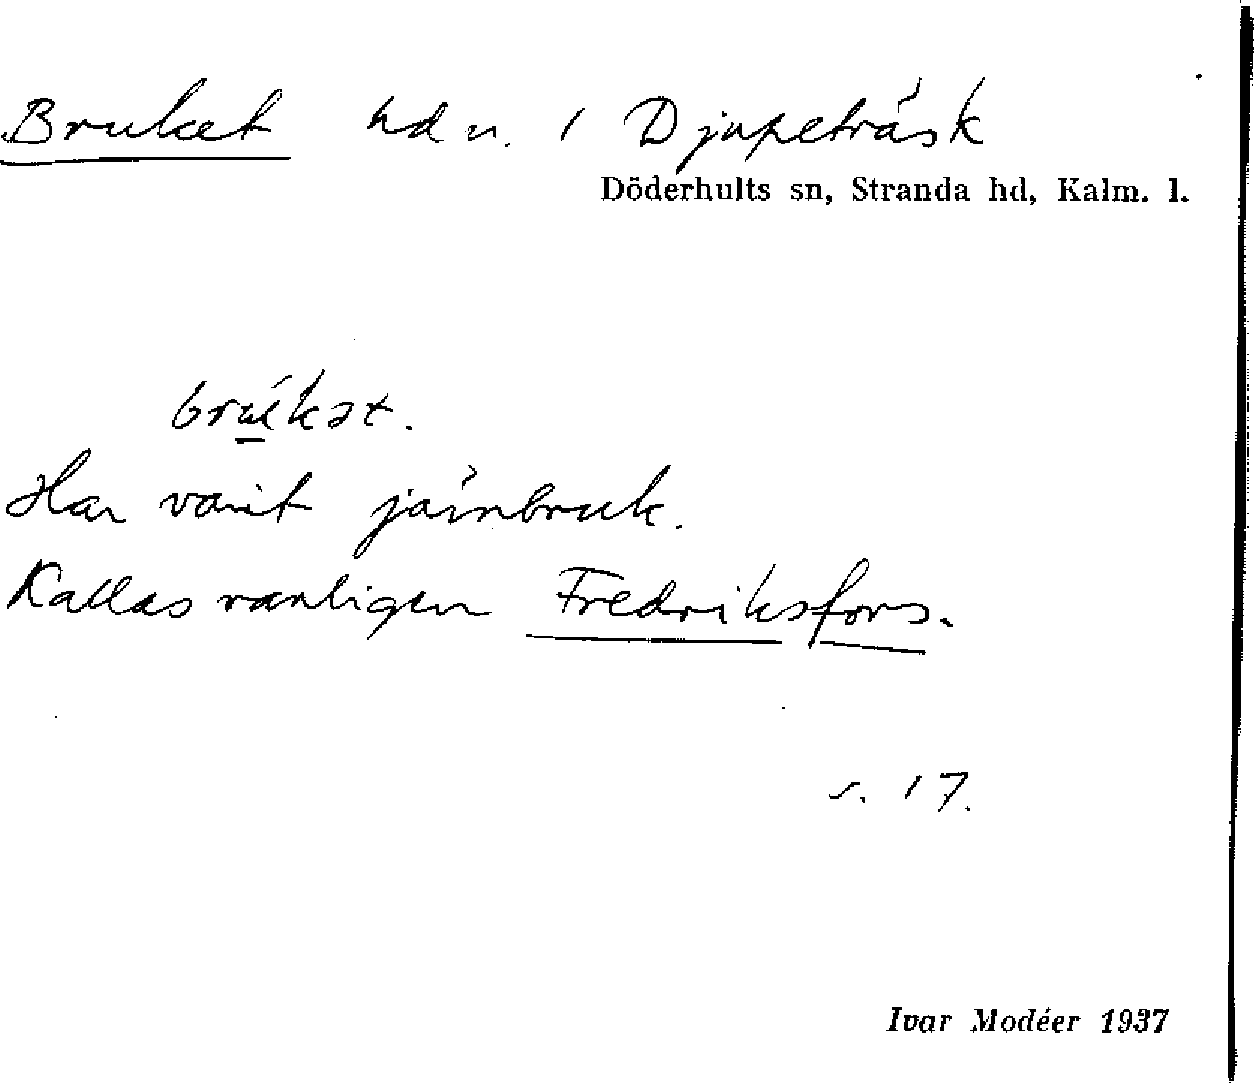 Bruket hdn. i Djupeträsk
Döderhults sn, Stranda hd, Kalm. l.
brúkət.
Har varit järnbruk.
Kallas vanligen Fredriksfors.
s. 17.
Ivar Modéer 1937